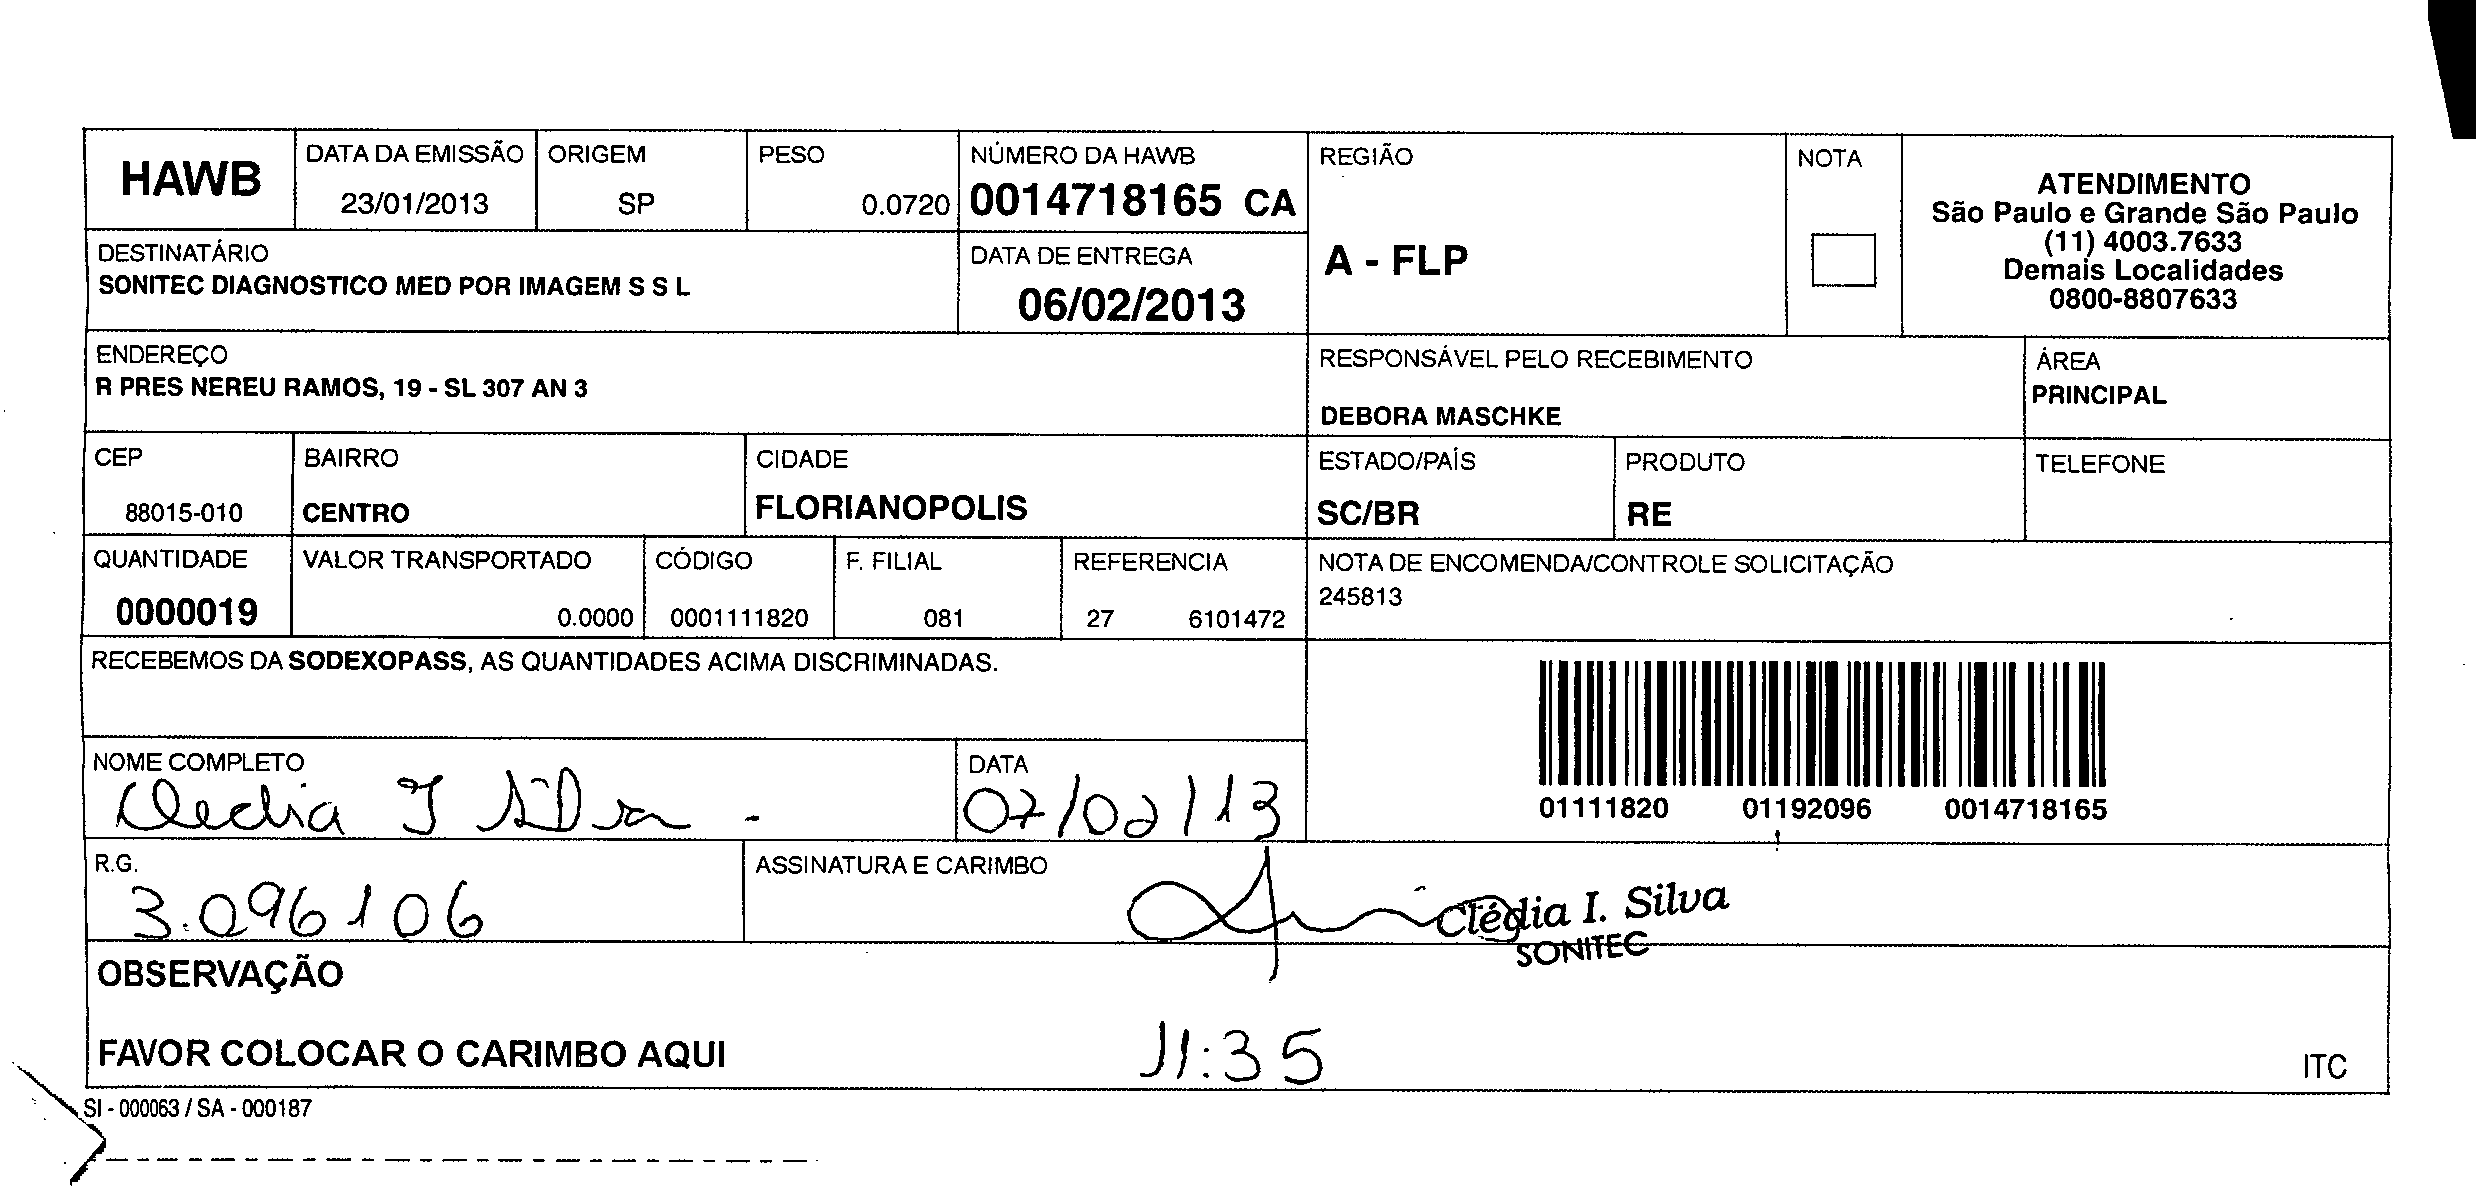 HAWB
DATA DA EMISSÃO
23/01/2013
ORIGEM
SP
PESO
0.0720
NÚMERO DA HAWB
0014718165 CA
REGIÃO
A - FLP
NOTA
ATENDIMENTO
São Paulo e Grande São Paulo
(11) 4003.7633
Demais Localidades
0800-8807633
DESTINATÁRIO
SONITEC DIAGNOSTICO MED POR IMAGEM S S L
DATA DE ENTREGA
06/02/2013
ENDEREÇO
R PRES NEREU RAMOS, 19 - SL 307 AN 3
RESPONSÁVEL PELO RECEBIMENTO
DEBORA MASCHKE
ÁREA
PRINCIPAL
CEP
88015-010
BAIRRO
CENTRO
CIDADE
FLORIANOPOLIS
ESTADO/PAÍS
SC/BR
PRODUTO
RE
TELEFONE
QUANTIDADE
0000019
VALOR TRANSPORTADO
0.0000
CÓDIGO
0001111820
F. FILIAL
081
REFERENCIA
27 6101472
NOTA DE ENCOMENDA/CONTROLE SOLICITAÇÃO
245813
RECEBEMOS DA SODEXOPASS, AS QUANTIDADES ACIMA DISCRIMINADAS.
01111820 01192096 0014718165
NOME COMPLETO
Cledia I Silva
DATA
07/02/13
R.G.
3.096106
ASSINATURA E CARIMBO
Clédia I. Silva
SONITEC
OBSERVAÇÃO
FAVOR COLOCAR O CARIMBO AQUI
11:35
ITC
SI - 000063 / SA - 000187